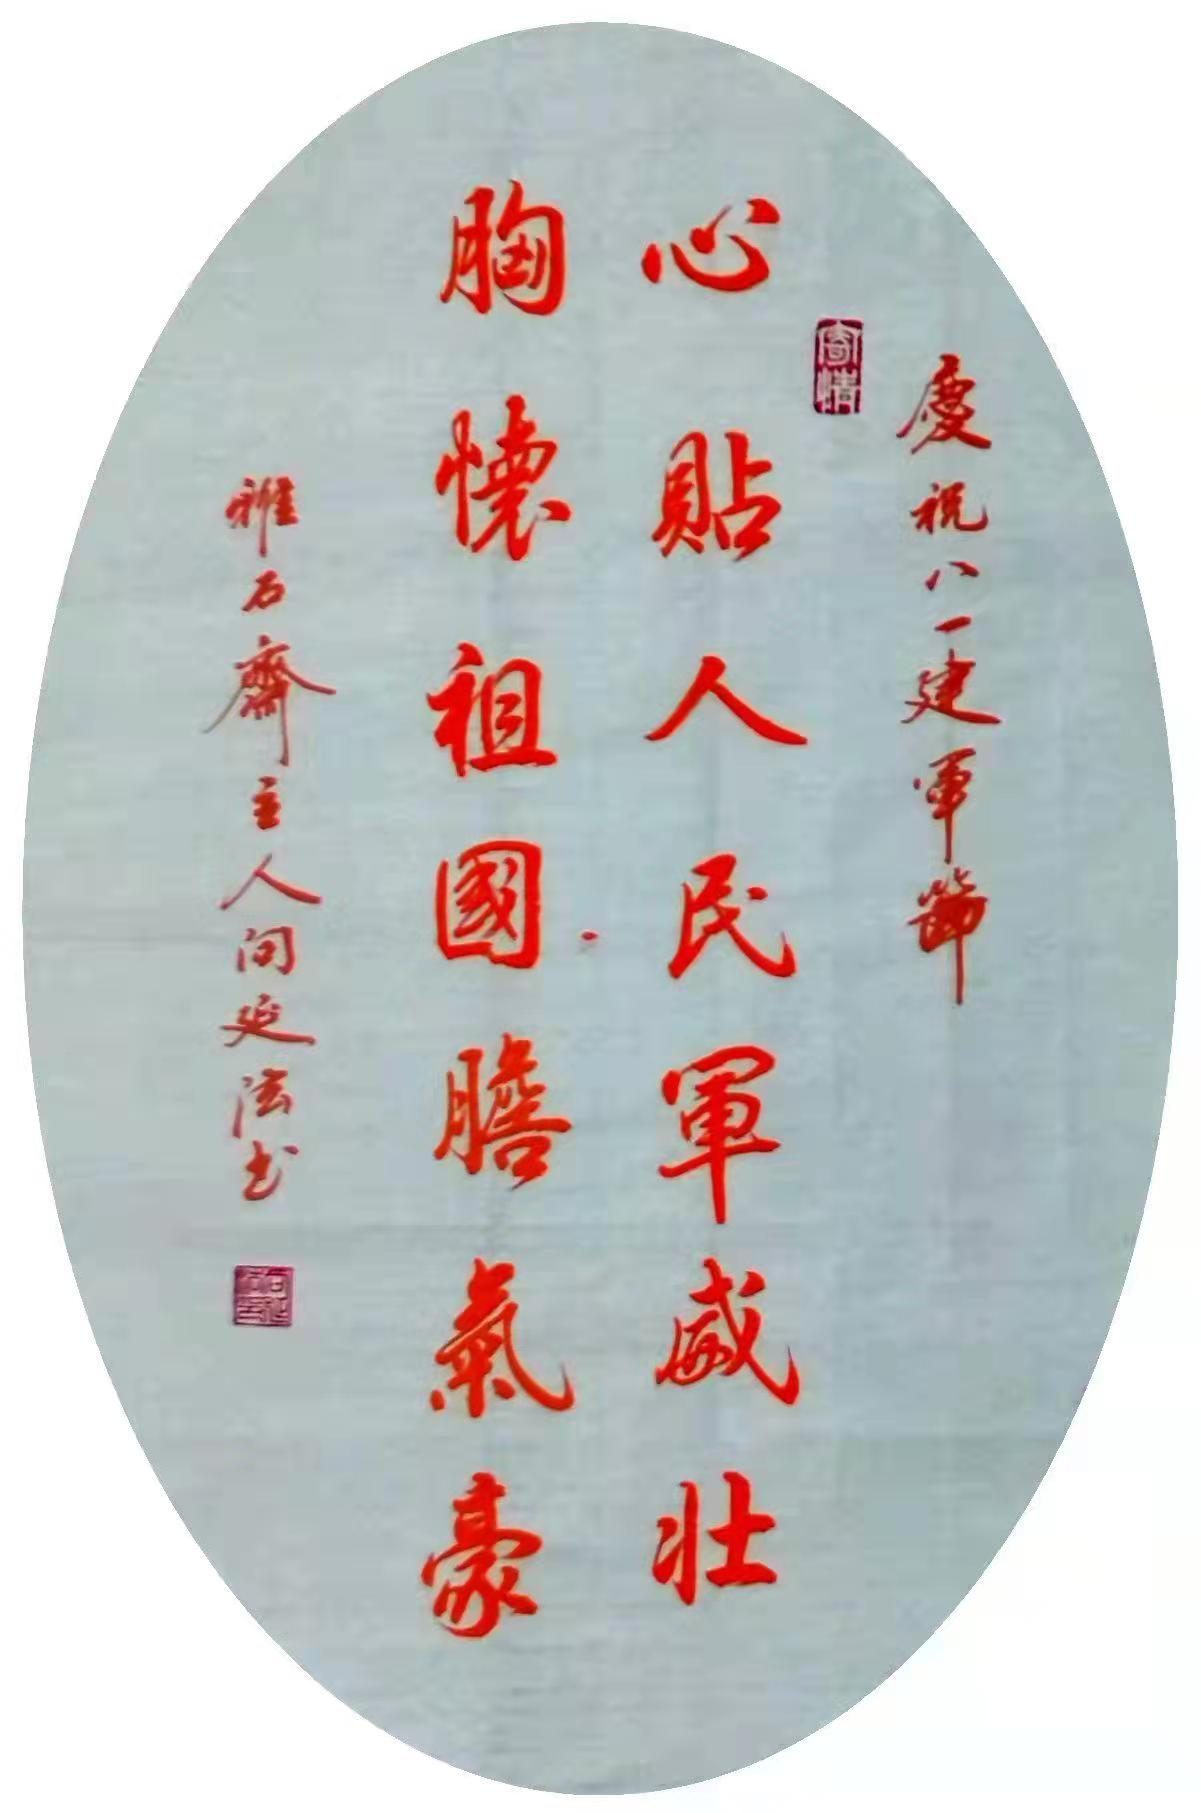 慶祝八一建軍節
寄情
心貼人民軍威壯
胸懷祖國膽氣豪
雅石齋主人问延法书